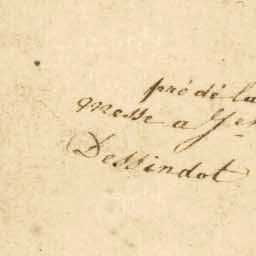 pré dé la
Messe a
Dessindot